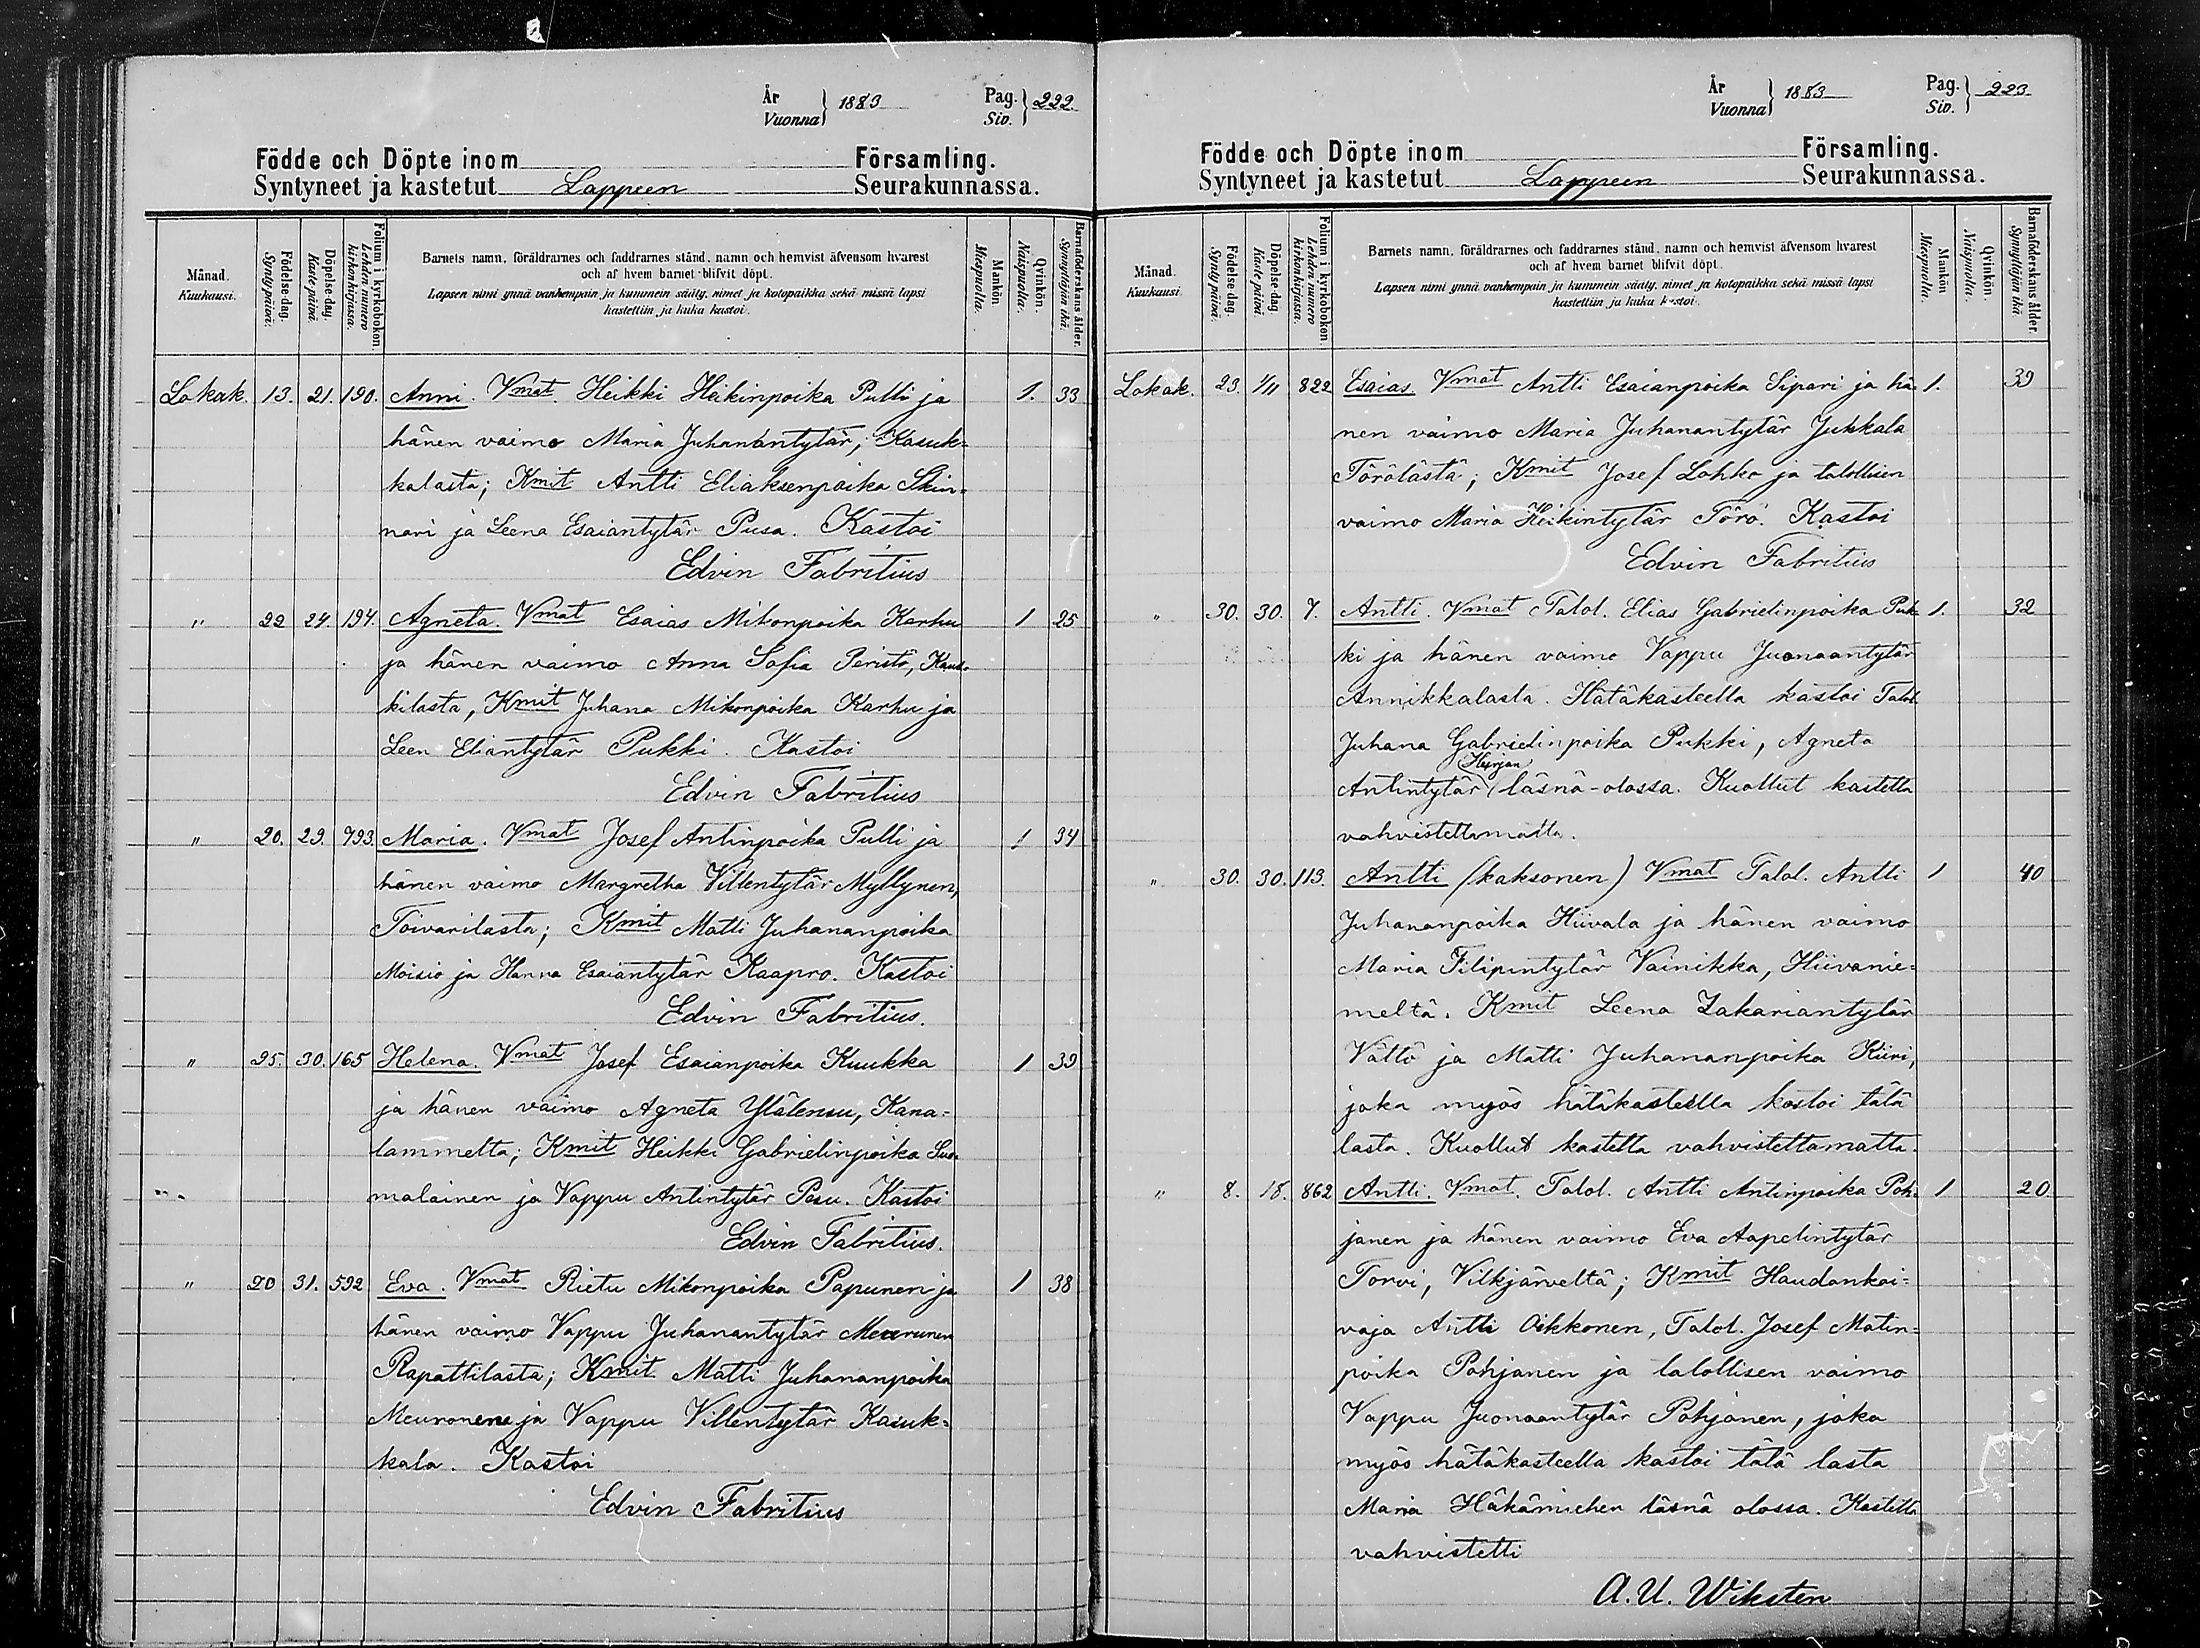 År
Vuonna } 1883
Pag.
Siv. } 222.
Födde och Döpte inom Församling.
Syntyneet ja kastetut Lappeen Seurakunnassa.
Månad.
Kuukausi.
Födelse-dag.
Synty päivä.
Döpelse-dag.
Kaste päivä.
Folium i kyrkoboken.
Lehden numero kirkonkirjassa.
Barnets namn, föräldrarnes och faddrarnes stånd, namn och hemvist äfvensom hvarest
och af hvem barnet blifvit döpt.
Lapsen nimi ynnä vanhempain ja kummein sääty, nimet ja kotopaikka sekä missä lapsi
kastettiin ja kuka kastoi.
Mankön
Miespuolta.
Qvinkön.
Naispuolta.
Barnaföderskans ålder.
Synnyttäjän ikä.
Lokak. 13. 21. 190. Anni. Vmat. Heikki Heikinpoika Pulli ja 1. 33
hänen vaimo Maria Juhanantytär, Kasuk=
kalasta; Kmit Antti Eliaksenpoika Skin=
nari ja Leena Esaiantytär Pusa. Kastoi
Edvin Fabritius
" 22 24. 194. Agneta. Vmat Esaias Mikonpoika Karhu 1 25
ja hänen vaimo Anna Sofia Peristö, Kaus=
kilasta, Kmit Juhana Mikonpoika Karhu ja
Leen Eliantytär Pukki. Kastoi
Edvin Fabritius
" 20. 29. 793. Maria. Vmat Josef Antinpoika Pulli ja 1 34
hänen vaimo Margretha Villentytär Myllynen,
Toivarilasta; Kmit Matti Juhananpoika
Moisio ja Hanna Esaiantytär Kaapro. Kastoi
Edvin Fabritius.
" 25. 30. 165 Helena. Vmat Josef Esaianpoika Kuukka 1 39
ja hänen vaimo Agneta Ylätensu, Kana=
lammelta; Kmit Heikki Gabrielinpoika Suo=
malainen ja Vappu Antintytär Pesu. Kastoi
Edvin Fabritius.
" 20 31. 592 Eva. Vmat Rietu Mikonpoika Papunen ja 1 38
hänen vaimo Vappu Juhanantytär Meuronen
Rapattilasta; Kmit Matti Juhananpoika
Meuronen ja Vappu Villentytär Kasuk=
kala. Kastoi
Edvin Fabritius
År
Vuonna } 1883
Pag.
Siv. } 223.
Födde och Döpte inom Församling.
Syntyneet ja kastetut Lappeen Seurakunnassa.
Månad.
Kuukausi
Födelse-dag.
Synty päivä.
Döpelse-dag
Kaste päivä.
Folium i kyrkoboken
Lehden numero kirkonkirjassa.
Barnets namn, föräldrarnes och faddrarnes stånd, namn och hemvist äfvensom hvarest
och af hvem barnet blifvit döpt.
Lapsen nimi ynnä vanhempain ja kummein sääty, nimet ja kotopaikka sekä missä lapsi
kastettiin ja kuka kastoi.
Mankön
Miespuolta.
Qvinkön.
Naispuolta.
Barnaföderskans ålder.
Synnyttäjän ikä.
Lokak. 23. 1/11 822 Esaias. Vmat Antti Esaianpoika Sipari ja hä= 1. 39
nen vaimo Maria Juhanantytär Jukkala
Törölästä; Kmit Josef Lohko ja talollisen
vaimo Maria Heikintytär Törö. Kastoi
Edvin Fabritius
" 30. 30. 7. Antti. Vmat Talol. Elias Gabrielinpoika Puk= 1. 32
ki ja hänen vaimo Vappu Juonaantytär
Annikkalasta. Hätäkasteella kastoi Talol.
Juhana Gabrielinpoika Pukki, Agneta
Kurjan
Antintytär läsnä-olossa. Kuollut kastetta
vahvistettamatta.
" 30. 30. 113. Antti (kaksonen) Vmat Talol. Antti 1 40
Juhananpoika Hiivala ja hänen vaimo
Maria Filipintytär Vainikka, Hiivanie=
meltä. Kmit Leena Zakariantytär
Vättö ja Matti Juhananpoika Kiiri,
joka myös hätäkasteella kastoi tätä
lasta. Kuollut kastetta vahvistettamatta.
" 8. 18. 862 Antti. Vmat. Talol. Antti Antinpoika Poh= 1 20
janen ja hänen vaimo Eva Aapelintytär
Torvi, Vilkjärveltä; Kmit Haudankai=
vaja Antti Oikkonen, Talol. Josef Matin=
poika Pohjanen ja talollisen vaimo
Vappu Juonaantytär Pohjanen, joka
myös hätäkasteella kastoi tätä lasta
Maria Häkämiehen läsnä olossa. Kastetta
vahvistetti
A. U. Wiksten